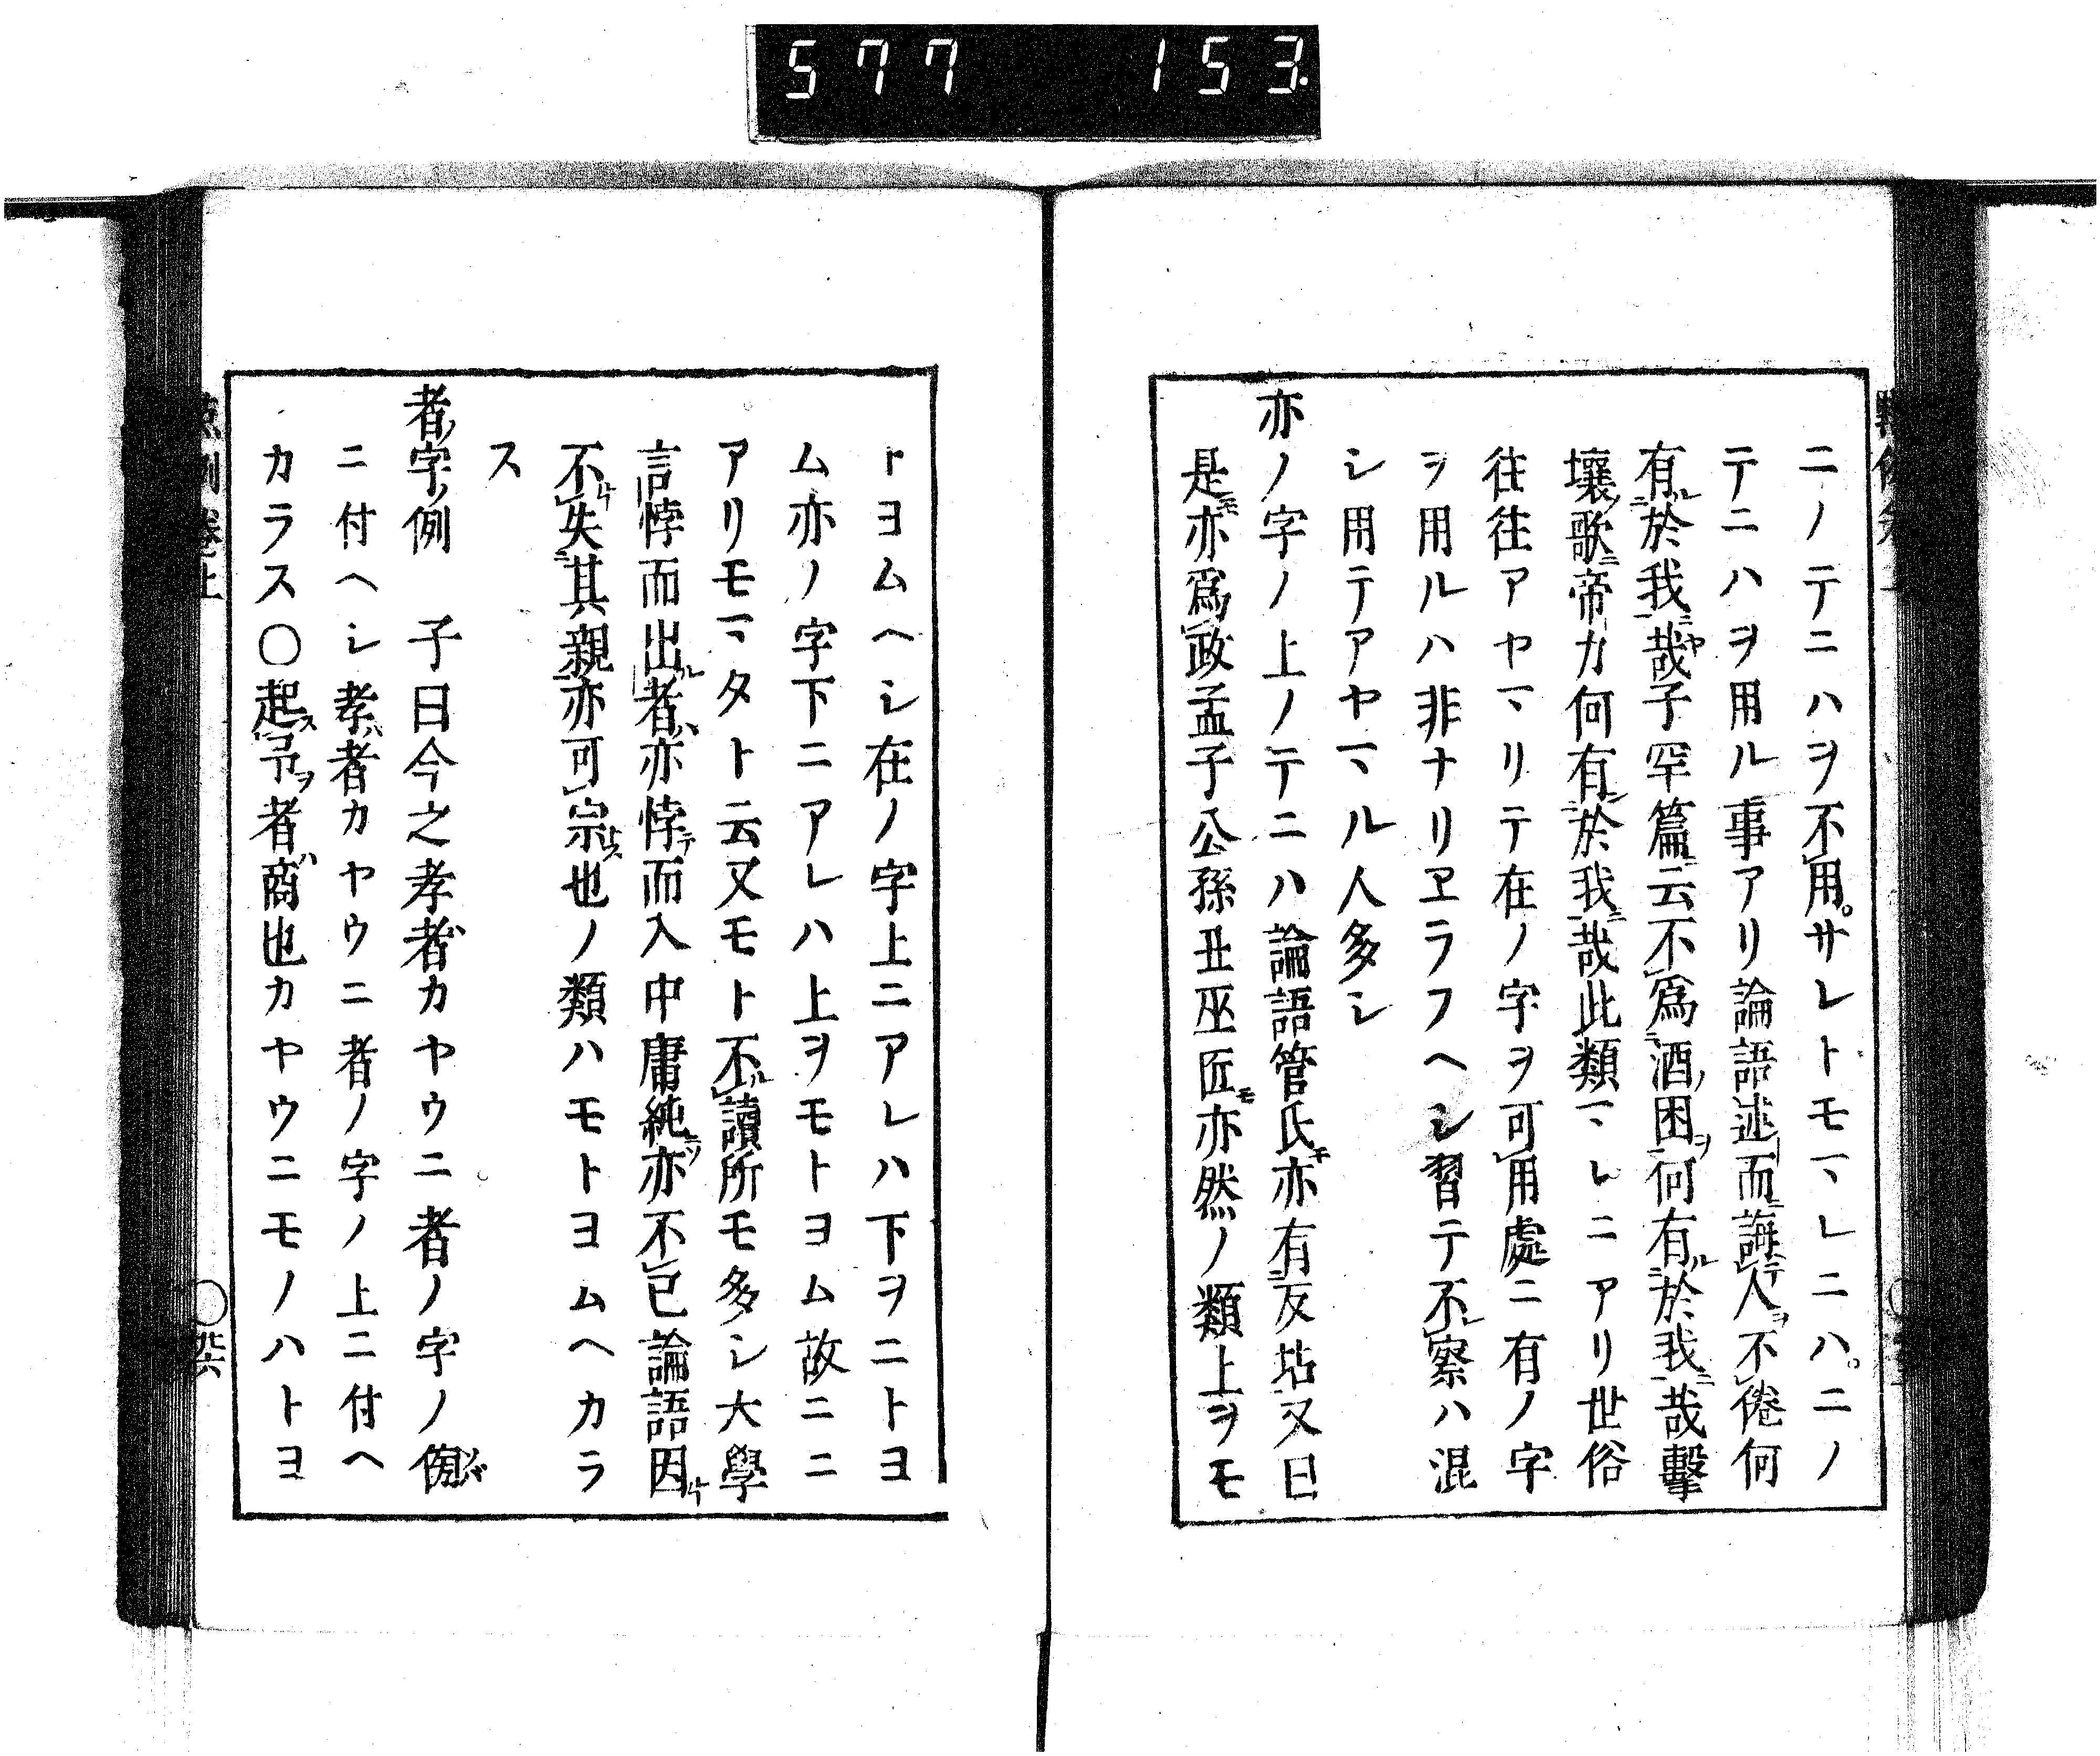 577 153.
ニノテニハヲ不用。サレトモマレニハ。ニノ
テニハヲ用ル事アリ論語述而誨人不倦何
有於我哉子罕篇云不爲酒困何有於我哉擊
壤歌帝力何有於我哉此類マレニアリ世俗
往往アヤマリテ在ノ字ヲ可用處ニ有ノ字
ヲ用ルハ非ナリヱラフヘシ習テ不察ハ混
シ用テアヤマル人多シ
亦ノ字ノ上ノテニハ論語管氏亦有反坫又曰
是亦爲政孟子公孫丑巫匠亦然ノ類上ヲモ
トヨムヘシ在ノ字上ニアレハ下ヲニトヨ
ム亦ノ字下ニアレハ上ヲモトヨム故ニニ
アリモマタト云又モト不讀所モ多シ大學
言悖而出者亦悖而入中庸純亦不已論語因
不失其親亦可宗也ノ類ハモトヨムヘカラ
ス
者字ノ例 子曰今之孝者カヤウニ者ノ字ノ傍
ニ付ヘシ孝者カヤウニ者ノ字ノ上ニ付ヘ
カラス〇起予者商也カヤウニモノハトヨ
點例卷上